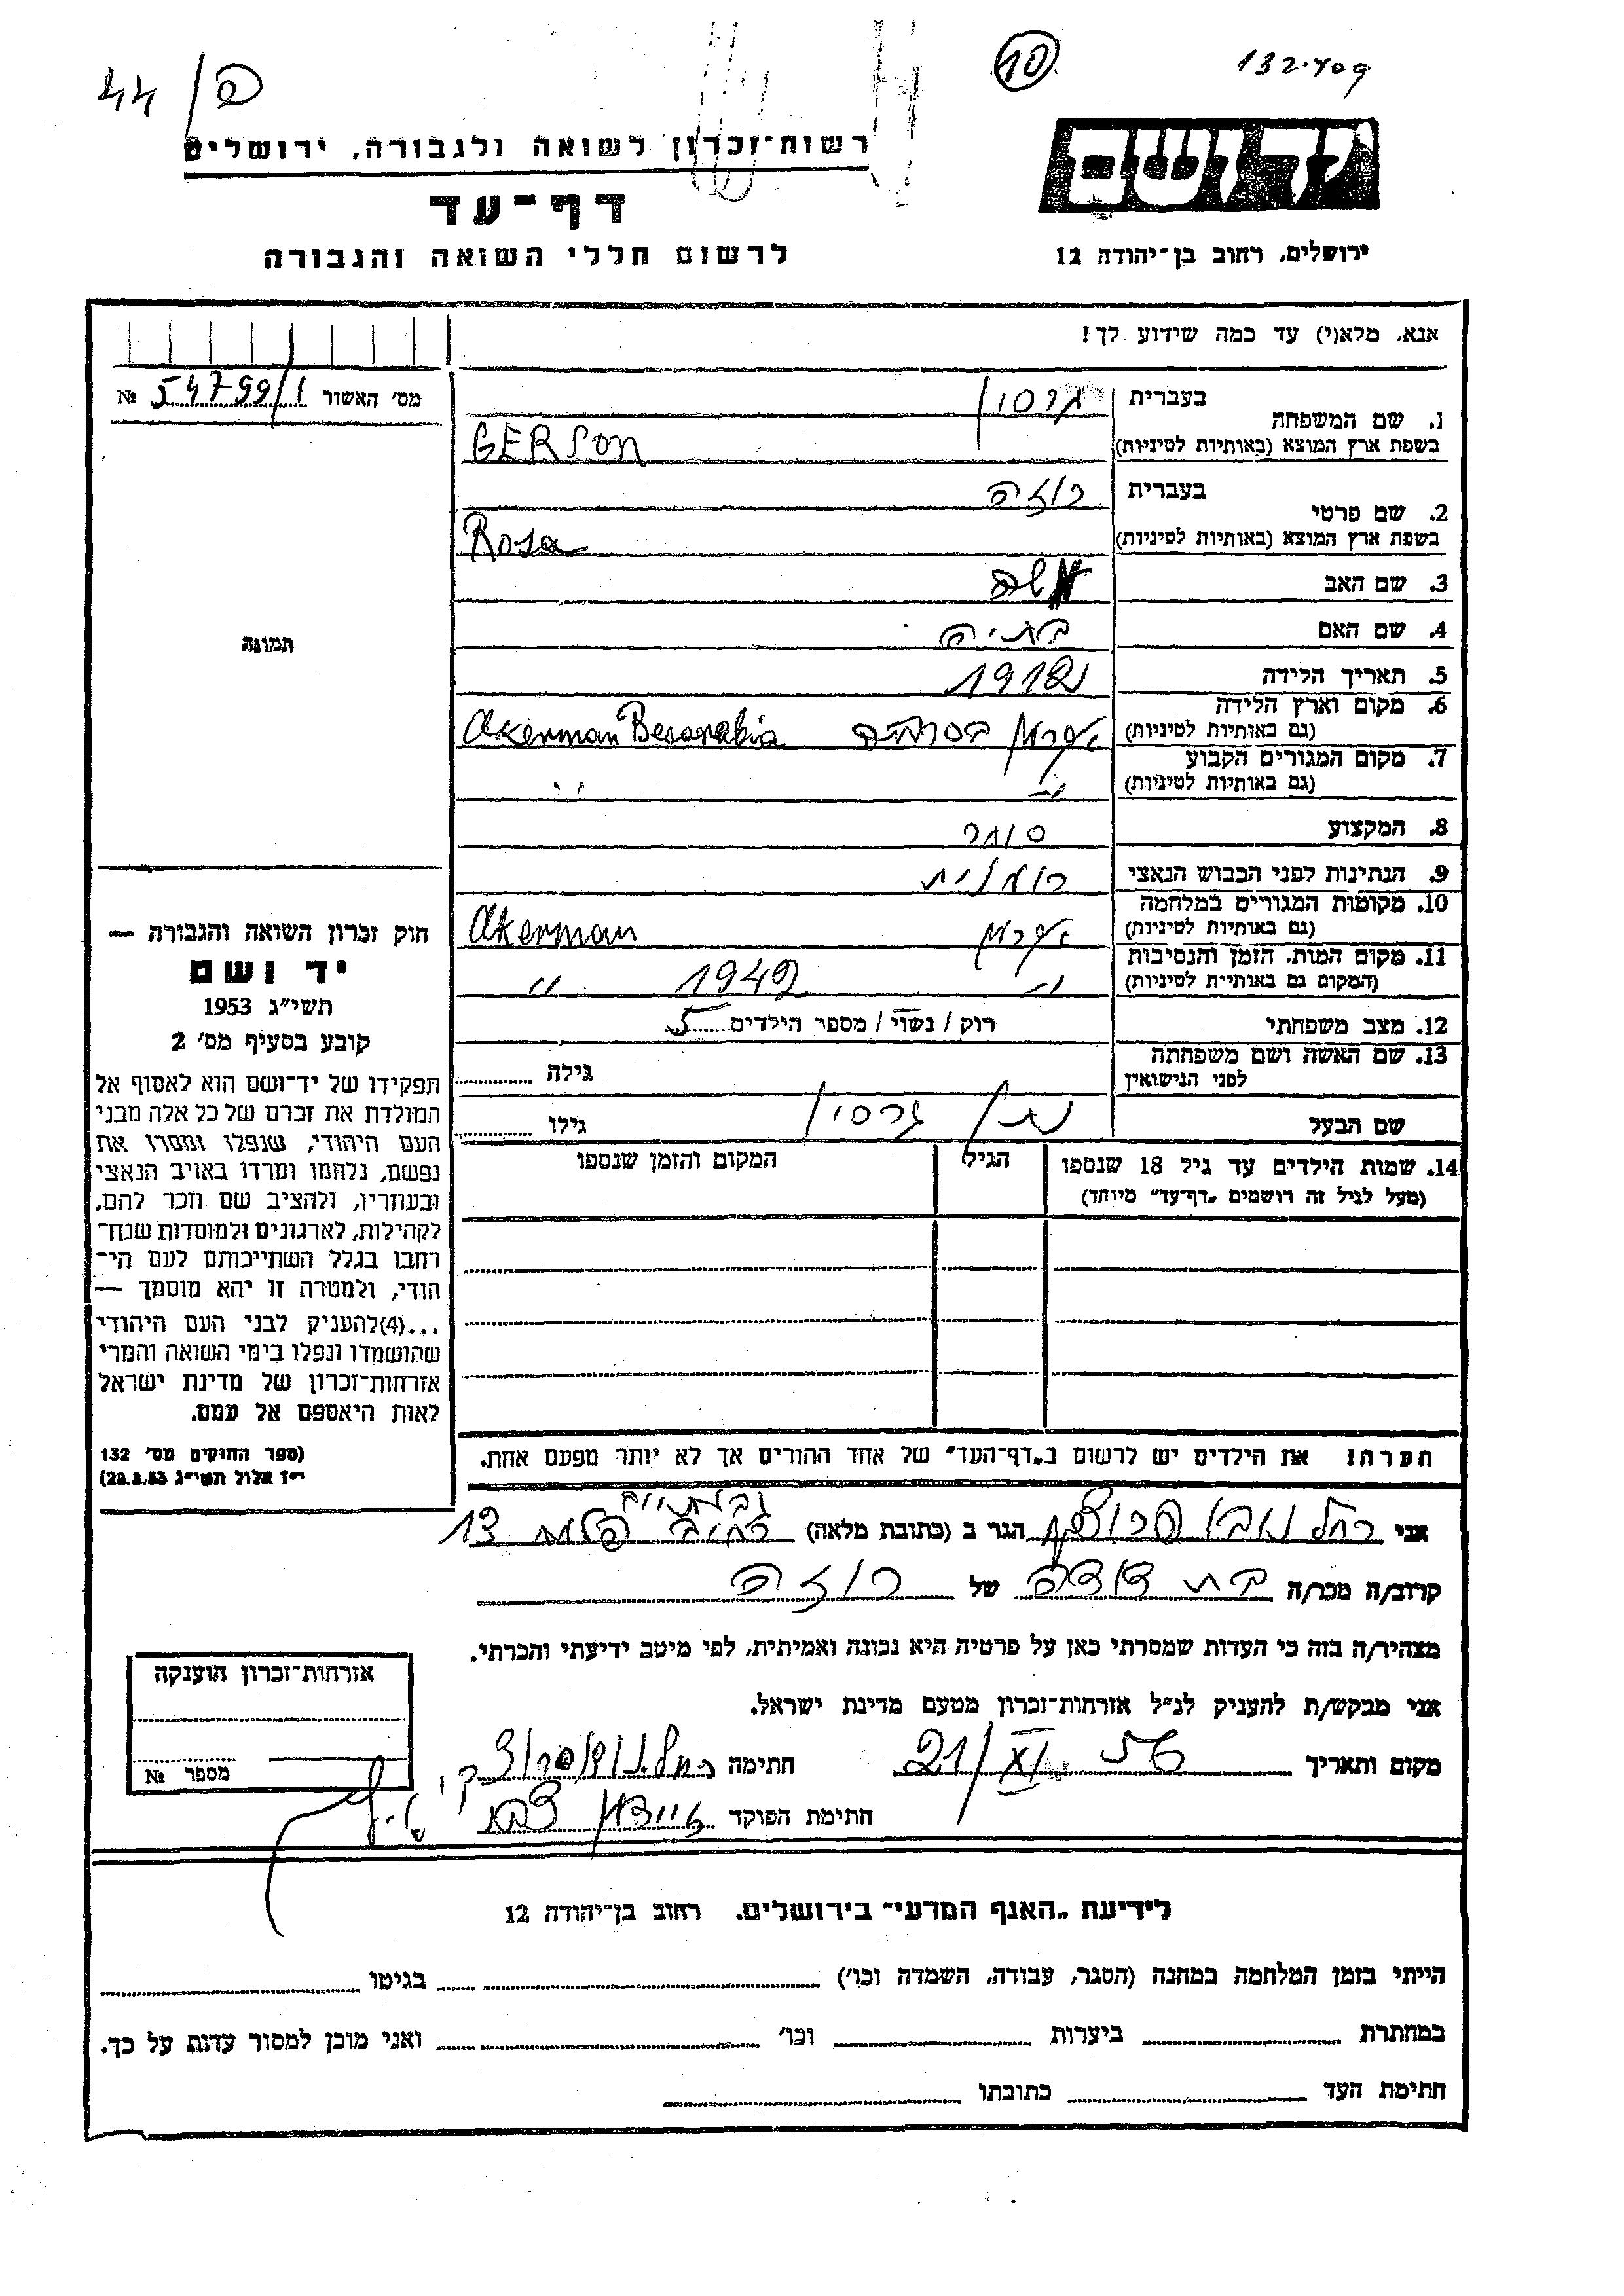 44/פ
10
132.409
רשות־זכרון לשואה ולגבורה, ירושלים
יד ושם
דף־עד
לרשום חללי השואה והגבורה
ירושלים, רחוב בן־יהודה 12
אנא, מלא(י) עד כמה שידוע לך!
מס׳ האשור 54799/1 №
בעברית גרסון
1. שם המשפחה
בשפת ארץ המוצא (באותיות לטיניות) GERSON
בעברית רוזה
2. שם פרטי
בשפת ארץ המוצא (באותיות לטיניות) Rosa
3. שם האב
4. שם האם בתיה
תמונה
5. תאריך הלידה
6. מקום וארץ הלידה
(גם באותיות לטיניות) אקרמן בסרביה Akerman Besarabia
7. מקום המגורים הקבוע
(גם באותיות לטיניות) -״- ״
8. המקצוע סוחר
9. הנתינות לפני הכבוש הנאצי רומנית
10. מקומות המגורים במלחמה
(גם באותיות לטיניות) אקרמן Akerman
11. מקום המות, הזמן והנסיבות
(המקום גם באותיית לטיניות) -״- 1942 ״
12. מצב משפחתי רוק / נשוי / מספר הילדים 5
13. שם האשה ושם משפחתה
לפני הנישואין גילה
שם הבעל נתן גרסון גילו
14. שמות הילדים עד גיל 18 שנספו הגיל המקום והזמן שנספו
(מעל לגיל זה רושמים „דף־עד״ מיוחד)
חוק זכרון השואה והגבורה —
יד ושם
תשי״ג 1953
קובע בסעיף מס׳ 2
תפקידו של יד־ושם הוא לאסוף אל
המולדת את זכרם של כל אלה מבני
העם היהודי, שנפלו ומסרו את
נפשם, נלחמו ומרדו באויב הנאצי
ובעוזריו, ולהציב שם וזכר להם,
לקהילות, לארגונים ולמוסדות שנח־
רחבו בגלל השתייכותם לעם הי־
הודי, ולמטרה זו יהא מוסמך —
...(4)להעניק לבני העם היהודי
שהושמדו ונפלו בימי השואה והמרי
אזרחות־זכרון של מדינת ישראל
לאות היאספם אל עמם.
(ספר החוקים מס׳ 132
י״ז אלול תשי״ג 28.8.53)
הערה! את הילדים יש לרשום ב„דף־העד״ של אחד ההורים אך לא יותר מפעם אחת.
גבעתיים
אני רחל הגר ב (כתובת מלאה) רחוב 13
קרוב/ה מכר/ה בת דודה של רוזה
מצהיר/ה בזה כי העדות שמסרתי כאן על פרטיה היא נכונה ואמיתית, לפי מיטב ידיעתי והכרתי.
אני מבקש/ת להעניק לנ״ל אזרחות־זכרון מטעם מדינת ישראל.
מקום ותאריך 21/XI 56 חתימה
חתימת הפוקד
אזרחות־זכרון הוענקה
מספר №
לידיעת „האנף המדעי״ בירושלים, רחוב בן־יהודה 12
הייתי בזמן המלחמה במחנה (הסגר, עבודה, השמדה וכו׳) בגיטו
במחתרת ביערות וכו׳ ואני מוכן למסור עדות על כך.
חתימת העד כתובתו